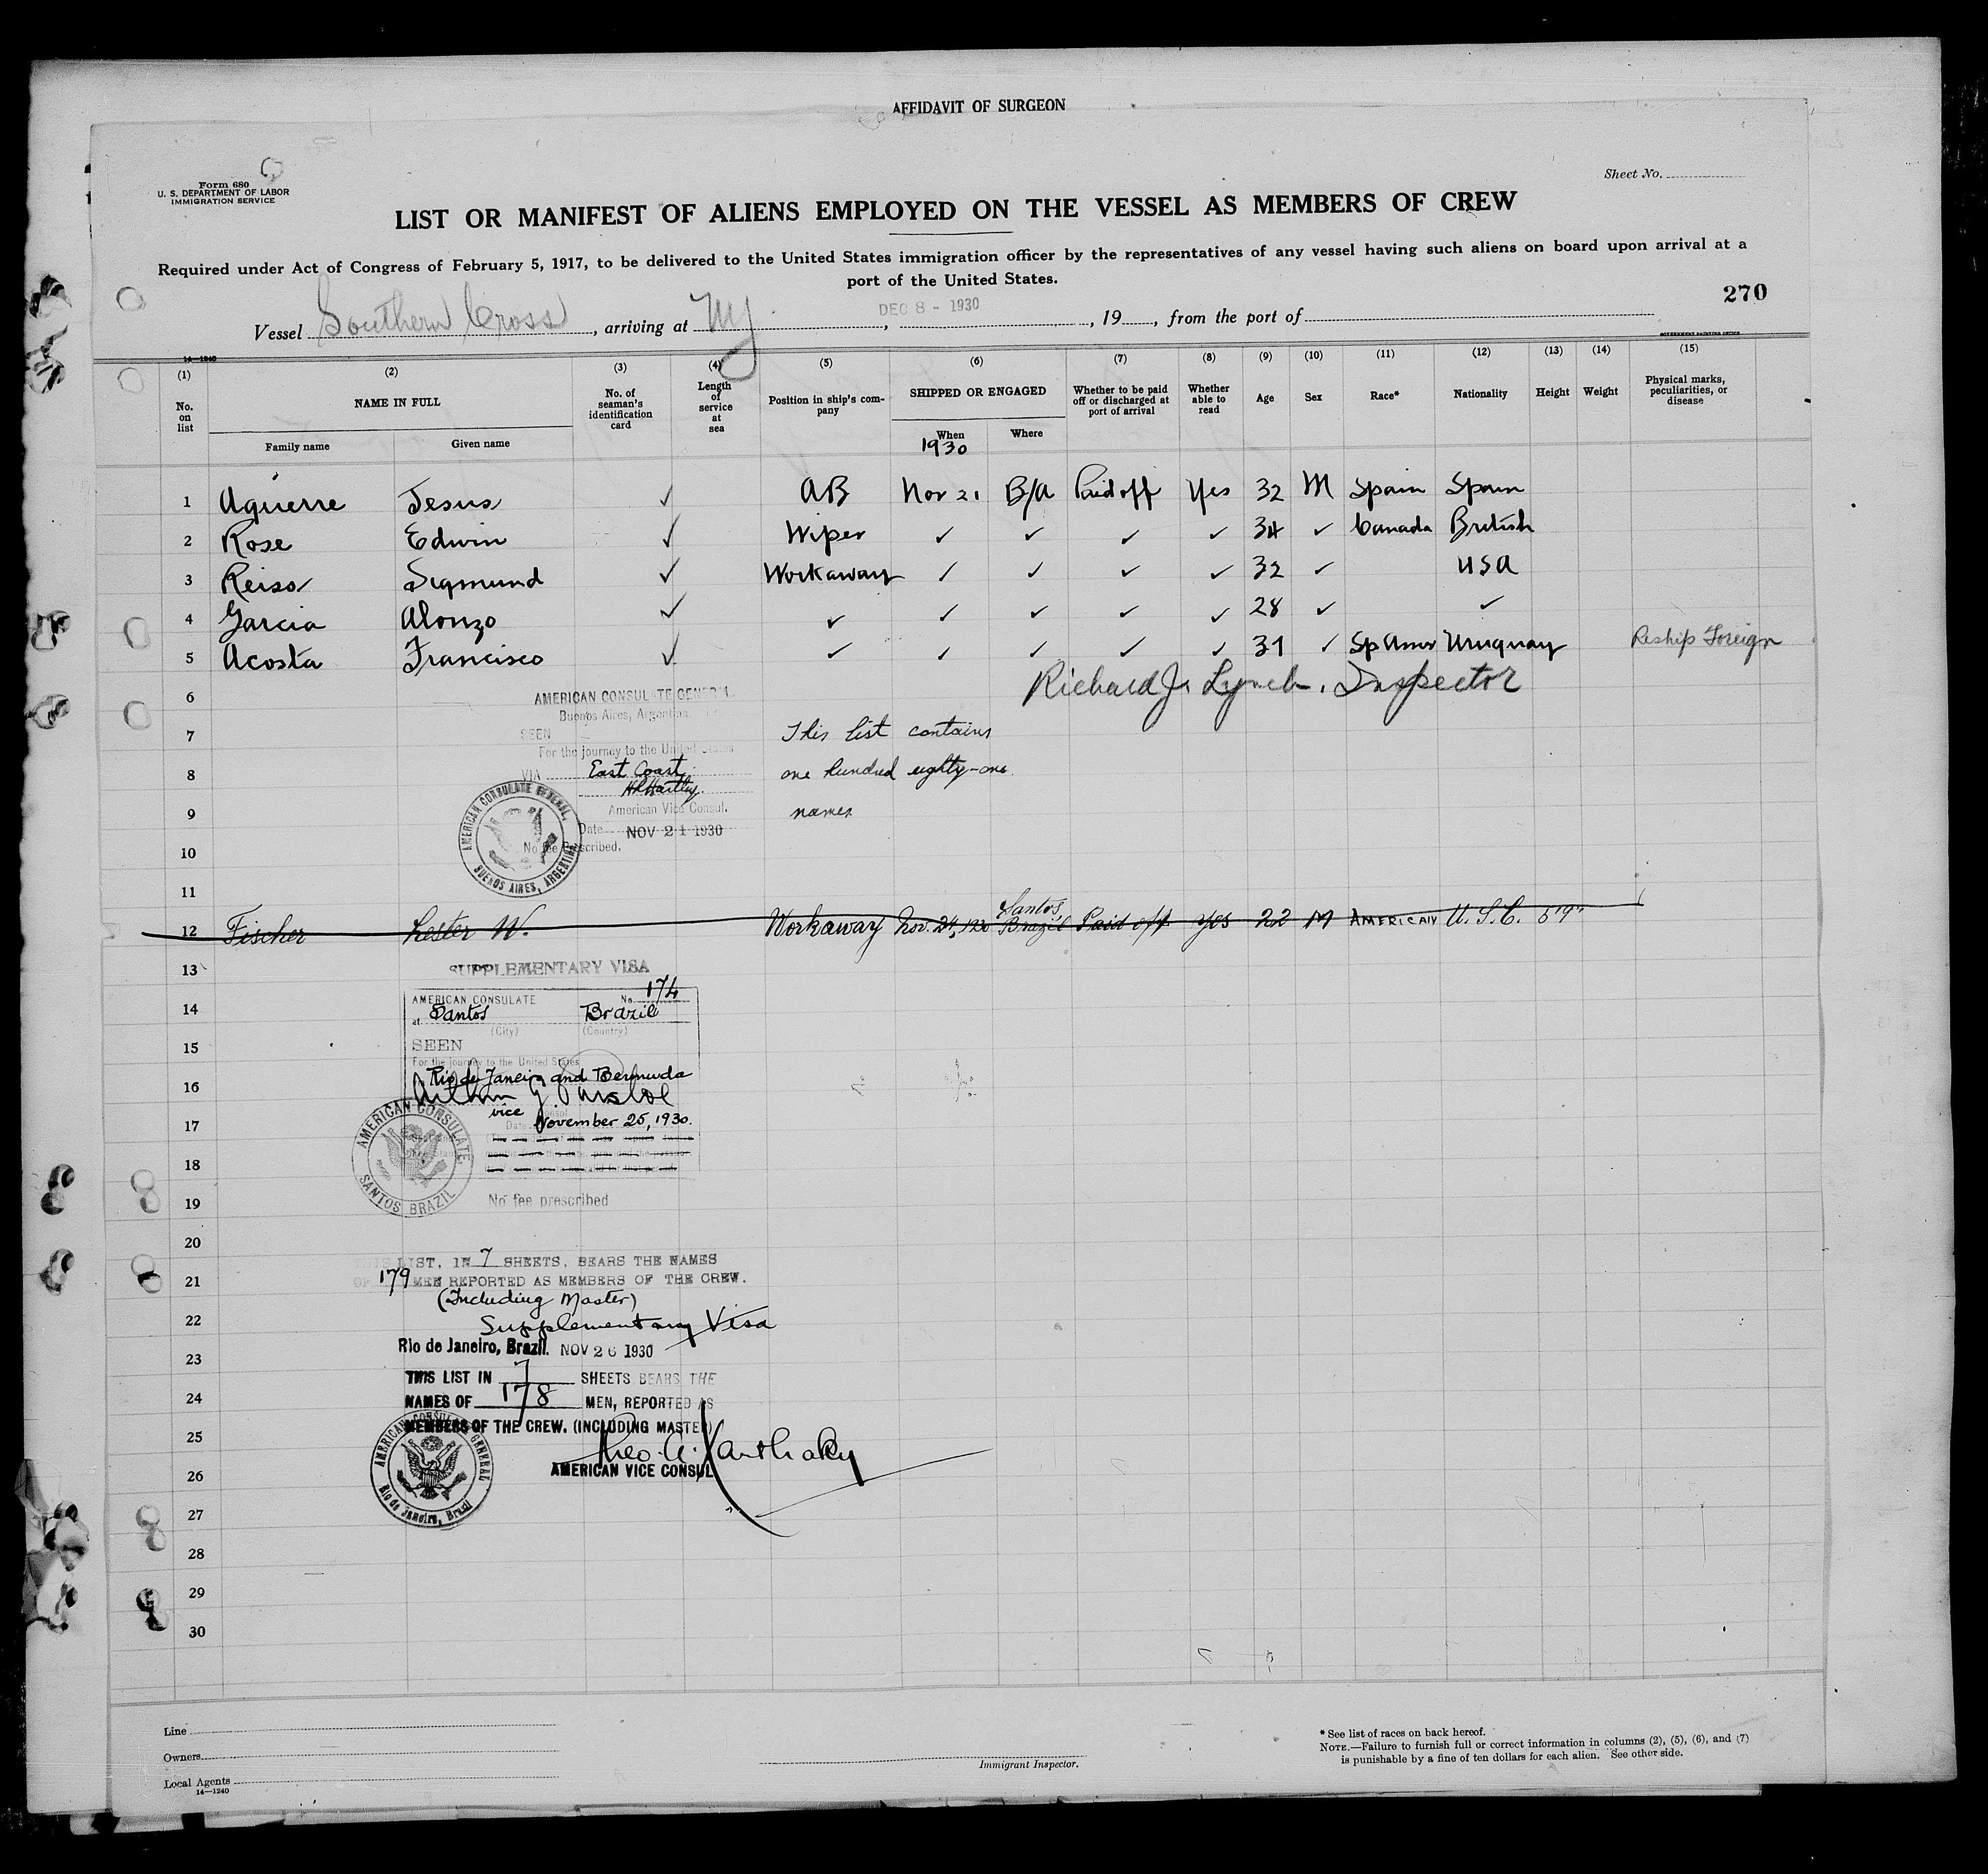 AFFIDAVIT OF SURGEON
Form 680
U. S. DEPARTMENT OF LABOR
IMMIGRATION SERVICE
Sheet No.
LIST OR MANIFEST OF ALIENS EMPLOYED ON THE VESSEL AS MEMBERS OF CREW
Required under Act of Congress of February 5, 1917, to be delivered to the United States immigration officer by the representatives of any vessel having such aliens on board upon arrival at a
port of the United States.
270
Vessel Southern Cross, arriving at NY, DEC 8 - 1930, 19, from the port of
GOVERNMENT PRINTING OFFICE
14—1240
(1) (2) (3) (4) (5) (6) (7) (8) (9) (10) (11) (12) (13) (14) (15)
No. on list NAME IN FULL No. of seaman's identification card Length of service at sea Position in ship's company SHIPPED OR ENGAGED Whether to be paid off or discharged at port of arrival Whether able to read Age Sex Race* Nationality Height Weight Physical marks, peculiarities, or disease
Family name Given name When Where
1930
1 Aguerre Jesus ✓ AB Nov 21 B/A Paid off Yes 32 M Spain Spain
2 Rose Edwin ✓ Wiper ✓ ✓ ✓ ✓ 34 ✓ Canada British
3 Reiss Sigmund ✓ Workaway ✓ ✓ ✓ ✓ 32 ✓ USA
4 Garcia Alonzo ✓ ✓ ✓ ✓ ✓ ✓ 28 ✓ ✓
5 Acosta Francisco ✓ ✓ ✓ ✓ ✓ ✓ 31 ✓ Sp Amer Uruguay Reship Foreign
6 Richard J. Lynch, Inspector
AMERICAN CONSULATE GENERAL
Buenos Aires, Argentina.
7 SEEN This list contains
For the journey to the United States
8 VIA East Coast one hundred eighty-one
HR Hartley
9 American Vice Consul. names
Date NOV 21 1930
10 No fee prescribed.
AMERICAN CONSULATE GENERAL, BUENOS AIRES, ARGENTINA
11
12 Fischer Lester W. Workaway Nov. 24, 1930 Santos Brazil Paid off Yes 22 M AMERICAN U.S.C. 5'9"
13 SUPPLEMENTARY VISA
14 AMERICAN CONSULATE No. 174
at Santos Brazil
(City) (Country)
15 SEEN
For the journey to the United States
16 Rio de Janeiro and Bermuda
vice Consul
17 Date November 25, 1930.
18
AMERICAN CONSULATE SANTOS BRAZIL
19 No fee prescribed
20
THIS LIST, IN 7 SHEETS, BEARS THE NAMES
21 OF 179 MEN REPORTED AS MEMBERS OF THE CREW.
(Including Master)
22 Supplementary Visa
23 Rio de Janeiro, Brazil. NOV 26 1930
THIS LIST IN 7 SHEETS BEARS THE
24 NAMES OF 178 MEN, REPORTED AS
MEMBERS OF THE CREW. (INCLUDING MASTER)
25 Theo. A. Xanthaky
26 AMERICAN VICE CONSUL
AMERICAN CONSULATE GENERAL Rio de Janeiro, Brazil
27
28
29
30
Line
Owners
Local Agents
14—1240
Immigrant Inspector.
* See list of races on back hereof.
NOTE.—Failure to furnish full or correct information in columns (2), (5), (6), and (7)
is punishable by a fine of ten dollars for each alien. See other side.